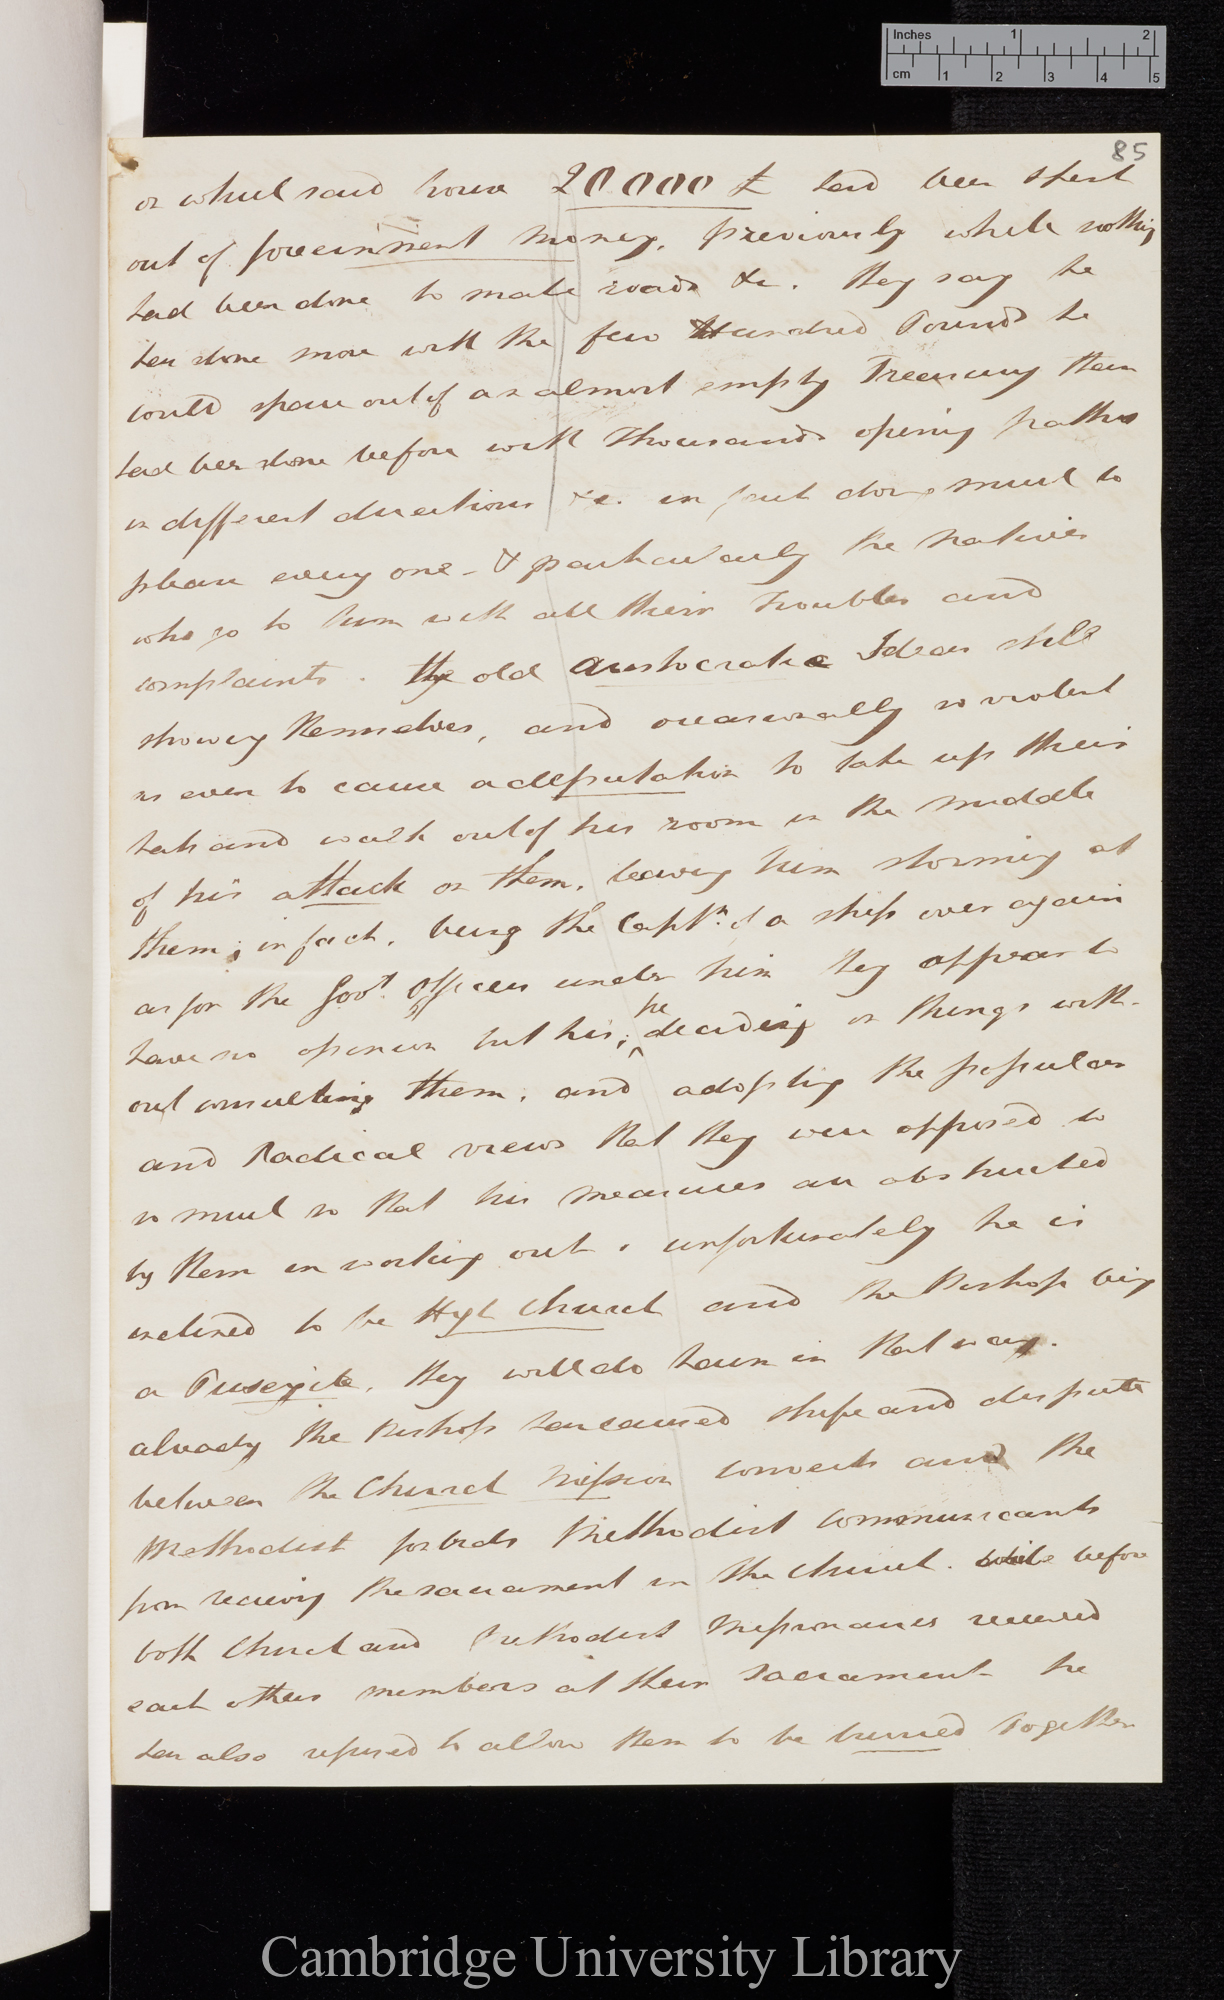 Inches 1 2
cm 1 2 3 4 5
85
on which said house 20000 £ had been spent
out of Government money, previously while nothing
had been done to make roads &c. they say he
has done more with the few Hundred Pounds he
could spare out of an almost empty Treasury than
had been done before with Thousands opening paths
in different directions &c. in fact doing much to
please every one - & particularly the natives
who go to him with all their Troubles and
complaints. the old Aristocratic Ideas still
showing themselves, and occasionally so violent
as even to cause a deputation to take up their
hats and walk out of his room in the middle
of his attack on them, leaving him storming at
them; in fact, being the Captn. of a ship over again
as for the Govt. officers under him they appear to
have no opinion but his; he deciding on things with-
out consulting them, and adopting the popular
and Radical views that they were opposed to
so much so that his measures are obstructed
by them in working out, unfortunately he is
inclined to be High Church and the Bishop being
a Puseyite, they will do harm in that way.
already the Bishop has caused strife and dispute
between the Church Mission converts and the
Methodist forbids Methodist communicants
from receiving the sacrament in the church. while before
both Church and Methodist Missionaries received
each others members at their Sacrament he
has also refused to allow them to be buried together
Cambridge University Library